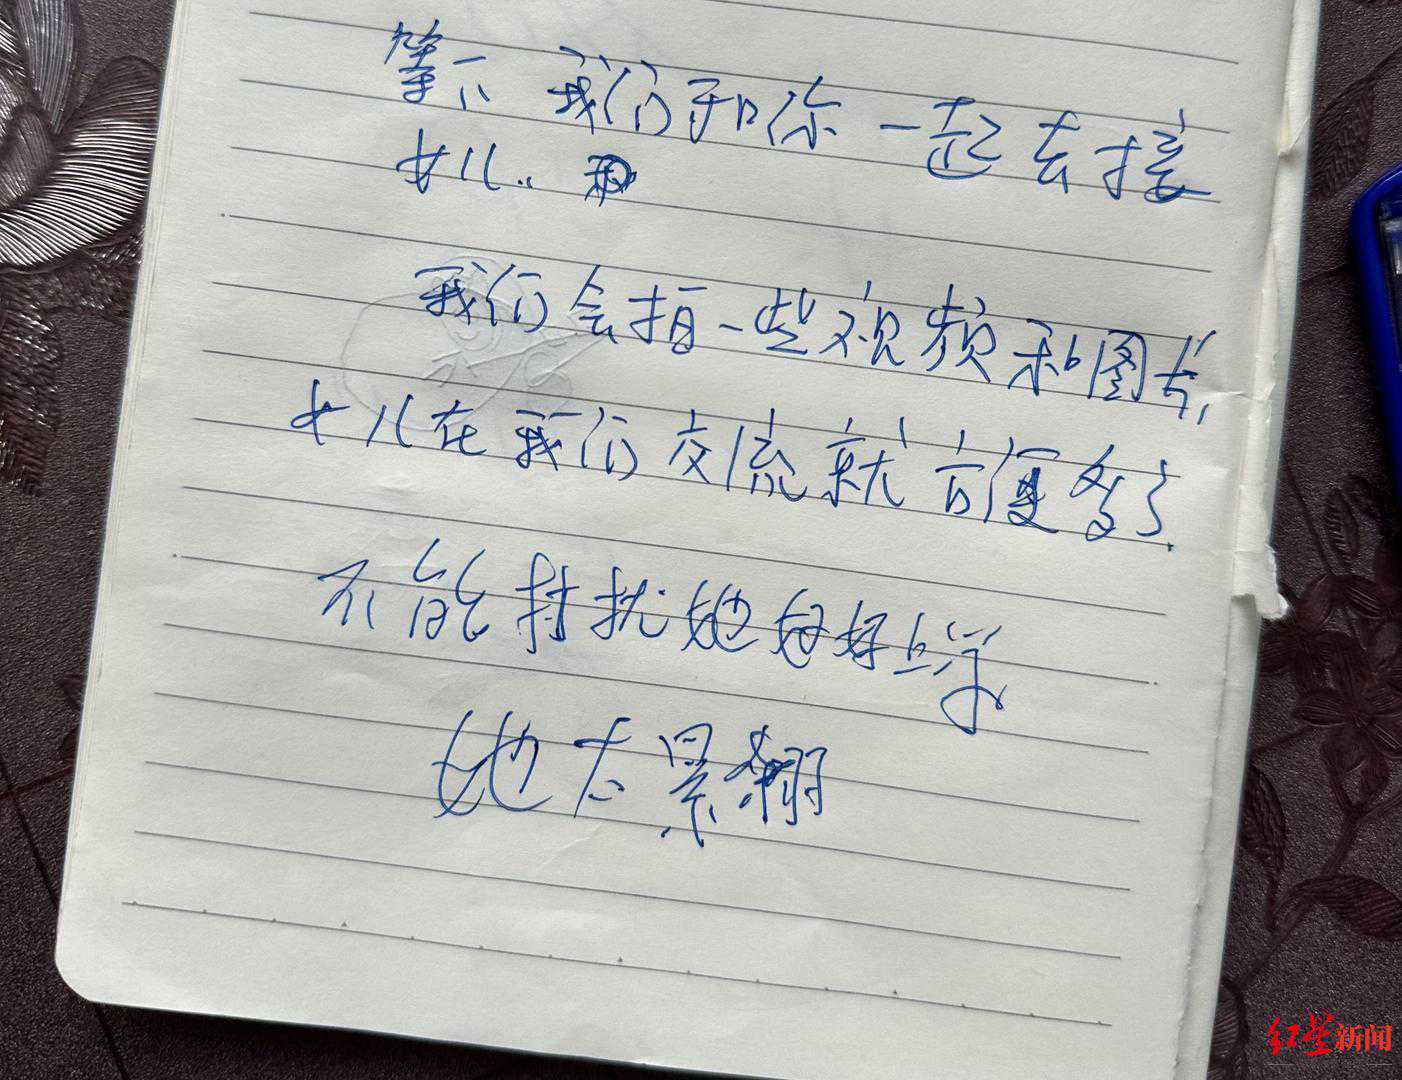 等下 我们和你一起去接
女儿..
我们会拍一些视频和图片
女儿在 我们交流就方便多了
不能打扰她好好上学
她太累
红星新闻